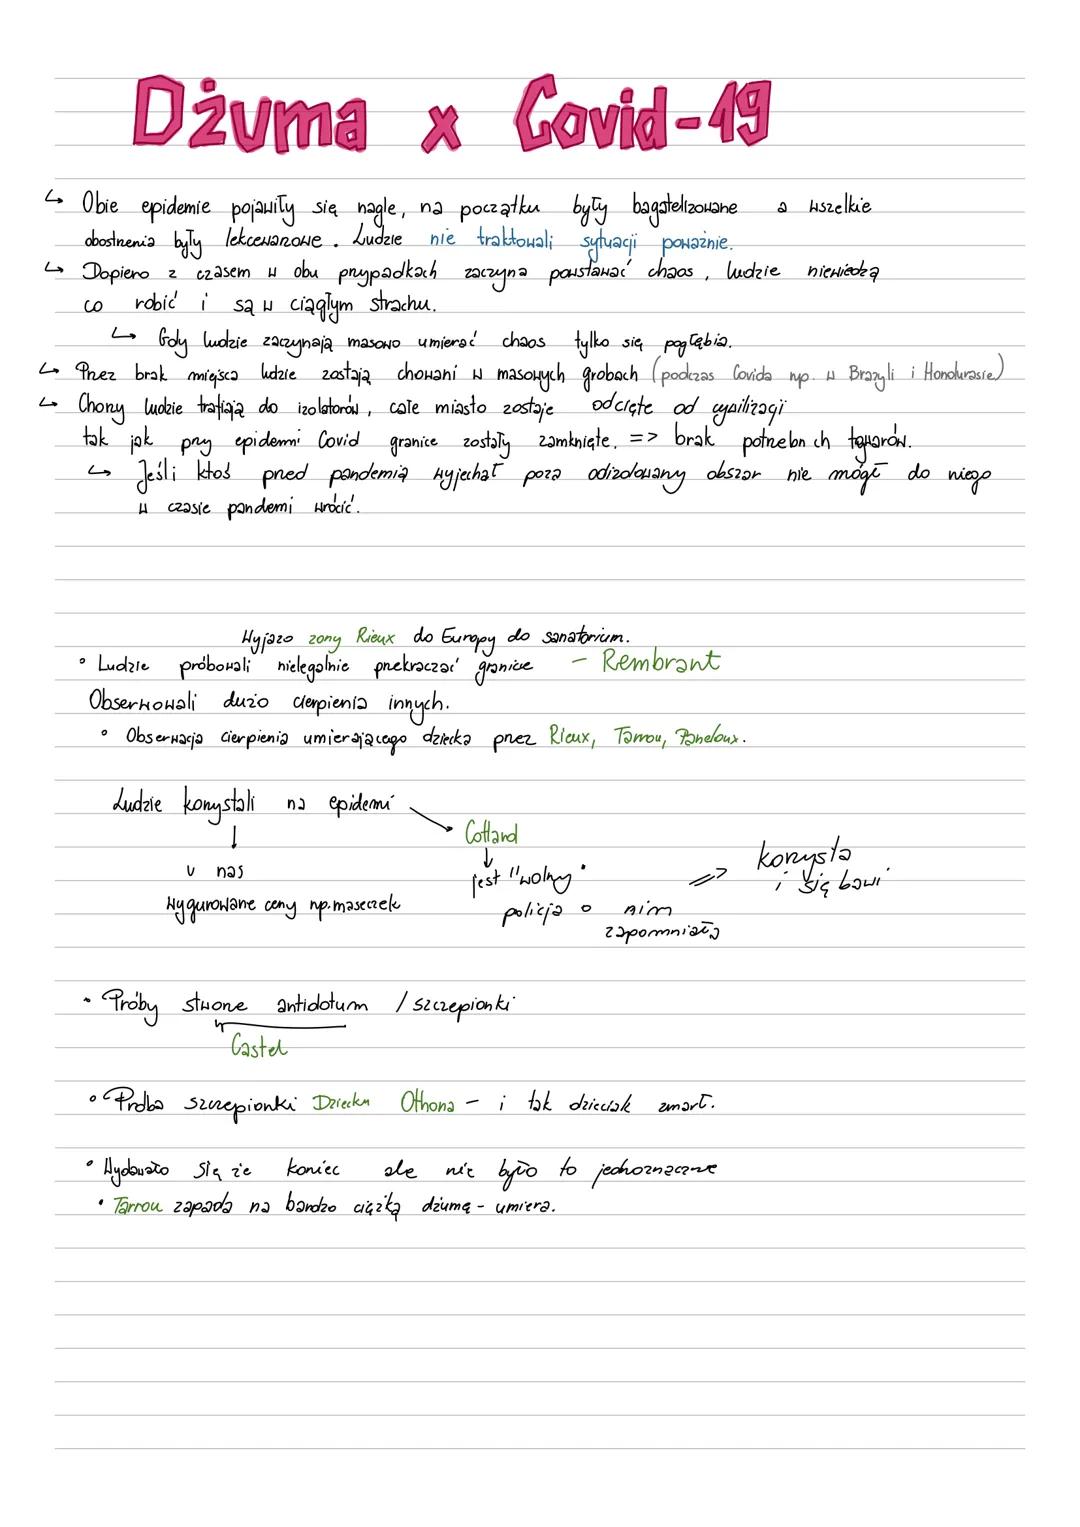 Dżuma x Covid-19
↳ Obie epidemie pojawiły się nagle, na początku były bagatelizowane a wszelkie
obostrzenia były lekceważone. Ludzie nie traktowali sytuacji poważnie.
↳ Dopiero z czasem w obu przypadkach zaczyna powstawać chaos, ludzie niewiedzą
co robić i są w ciągłym strachu.
↳ Gdy ludzie zaczynają masowo umierać chaos tylko się pogłębia.
↳ Przez brak miejsca ludzie zostają chowani w masowych grobach (podczas Covida np. w Brazyli i Hondurasie)
↳ Chorzy ludzie trafiają do izolatorów, całe miasto zostaje odcięte od cywilizacji
tak jak przy epidemi Covid granice zostały zamknięte. => brak potrzebn ch towarów.
↳ Jeśli ktoś przed pandemią wyjechał poza odizolowany obszar nie mógł do niego
w czasie pandemi wrócić.
Wyjazd żony Rieux do Europy do sanatorium.
• Ludzie próbowali nielegalnie przekraczać granice - Rembrant
Obserwowali dużo cierpienia innych.
• Obserwacja cierpienia umierającego dziecka przez Rieux, Tarrou, Paneloux.
Ludzie korzystali na epidemi
Cottard
u nas
jest "wolny" => korzysta
i się bawi
wygurowane ceny np. maseczek
policja o nim
zapomniała
• Próby stworze antidotum / szczepionki
Castel
• Próba szczepionki Dziecku Othona - i tak dzieciak zmarł.
• Wydawało się że koniec ale nie było to jednoznaczne
• Tarrou zapada na bardzo ciężką dżumę - umiera.